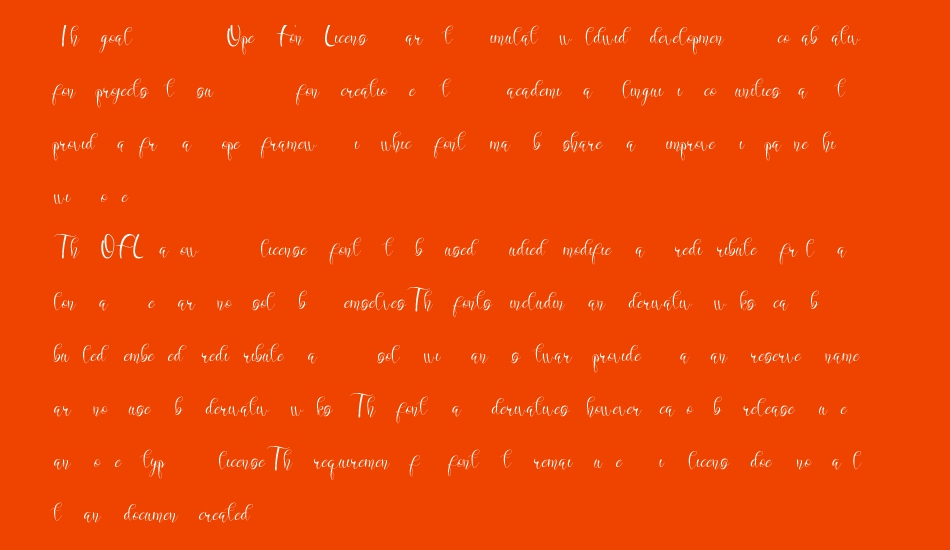 Th goal Ope Fon Licens ar t imulat w ldwid developmen co ab ativ
fon projects t su fon creatio e t academi a lingui i co unities a t
provid a fr a ope framew i whic font ma b share a improve i pa ne hi
wi o e
Th OFL a ow license font t b used udied modifie a redi ribute fr l a
lon a e ar no sol b emselves Th fonts includin an derivativ w ks ca b
bu led embe ed redi ribute a sol wi an s twar provide a an reserve name
ar no use b derivativ w ks Th font a derivatives however ca o b release u e
an o e typ license Th requiremen f font t remai u e i licens doe no a l
t an documen created